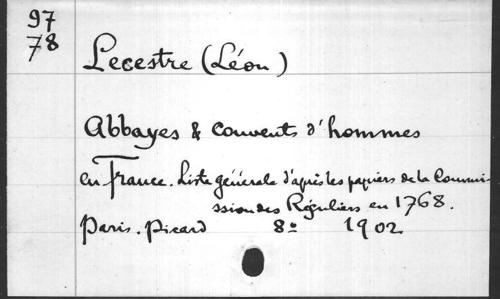 97
78
Lecestre (Léon)
Abbayes & couvents d'hommes
en France. Liste générale d'après les papiers de la Commi-
ssion des Réguliers en 1768.
Paris. Picard 8º 1902